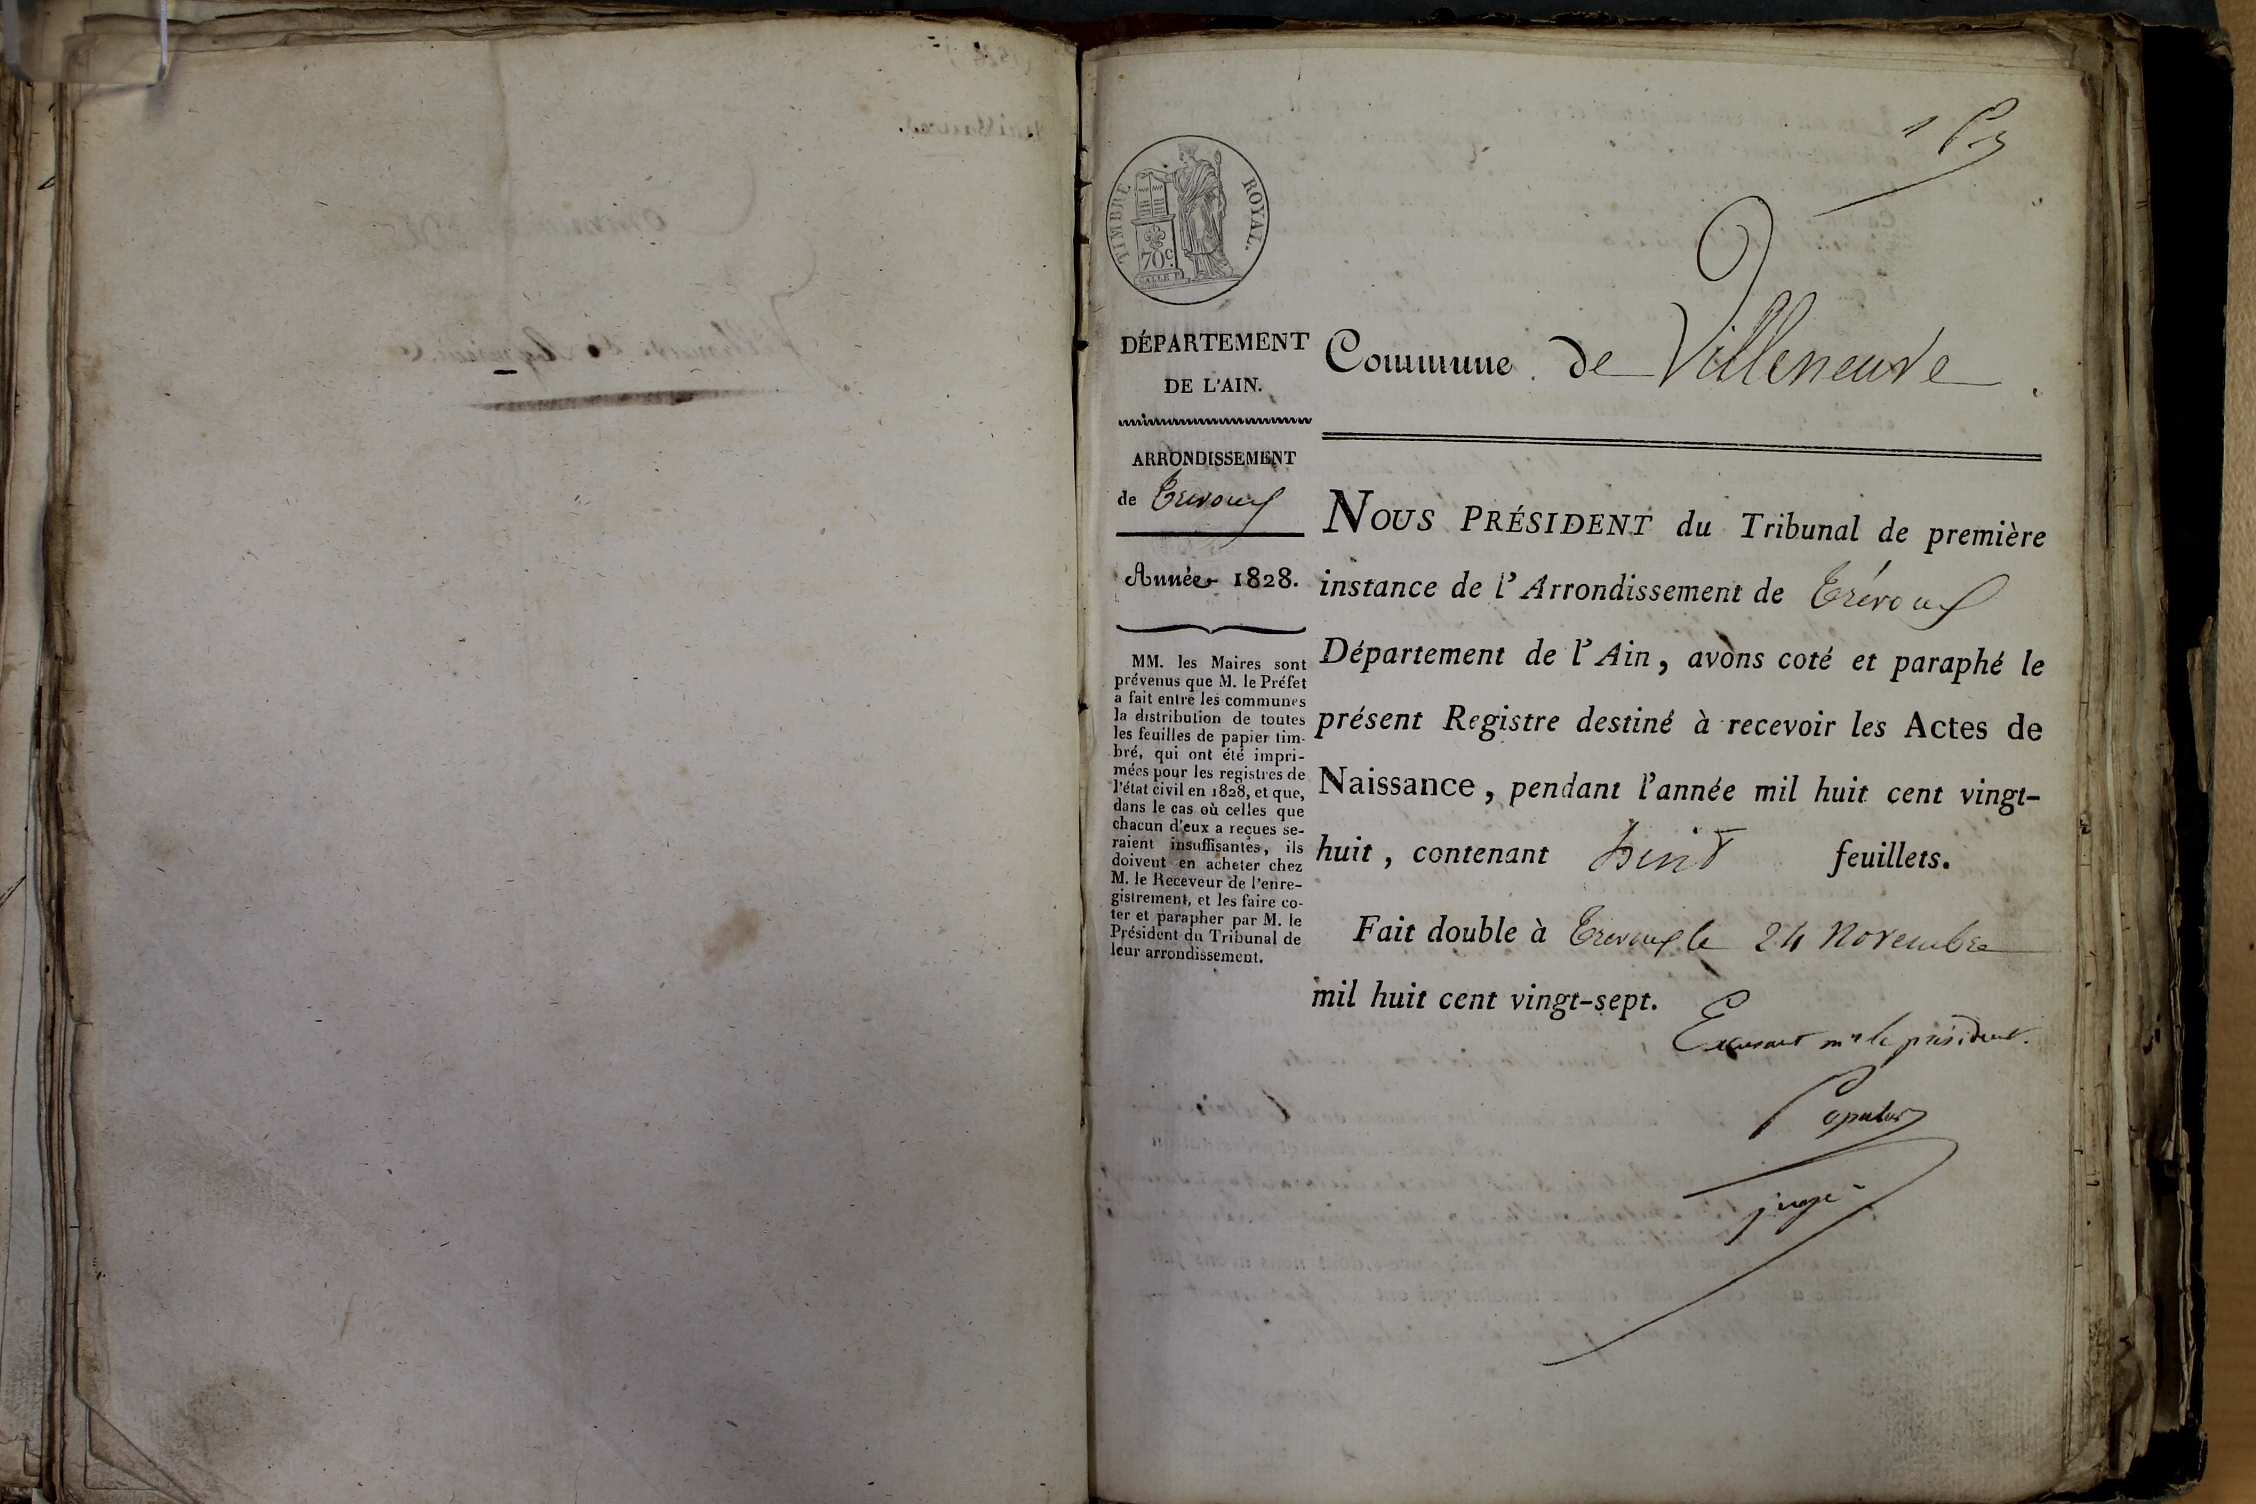 TIMBRE ROYAL.
70c.
DÉPARTEMENT
DE L'AIN.
ARRONDISSEMENT
de Trevoux
Année 1828.
MM. les Maires sont
prévenus que M. le Préfet
a fait entre les communes
la distribution de toutes
les feuilles de papier tim-
bré, qui ont été impri-
mées pour les registres de
l'état civil en 1828, et que,
dans le cas où celles que
chacun d'eux a reçues se-
raient insuffisantes, ils
doivent en acheter chez
M. le Receveur de l'enre-
gistrement, et les faire co-
ter et parapher par M. le
Président du Tribunal de
leur arrondissement.
Commune de Villeneuve
NOUS PRÉSIDENT du Tribunal de première
instance de l'Arrondissement de Trévoux
Département de l'Ain, avons coté et paraphé le
présent Registre destiné à recevoir les Actes de
Naissance, pendant l'année mil huit cent vingt-
huit, contenant huit feuillets.
Fait double à Trevoux le 24 Novembre
mil huit cent vingt-sept.
Excusant mr le président.
juge